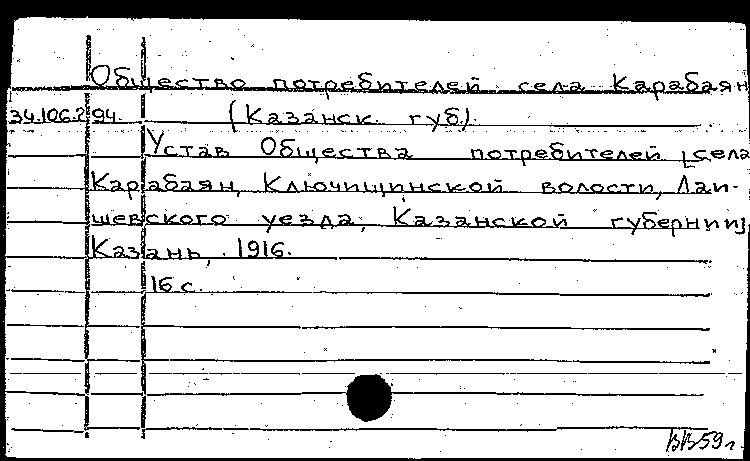 Общество потребителей села Карабаян
34.106.2.94. (Казанск. губ.)
Устав Общества потребителей [села
Карабаян, Ключищинской волости, Лаи-
шевского уезда, Казанской губернии].
Казань, 1916.
16 с.
ВВ59г.